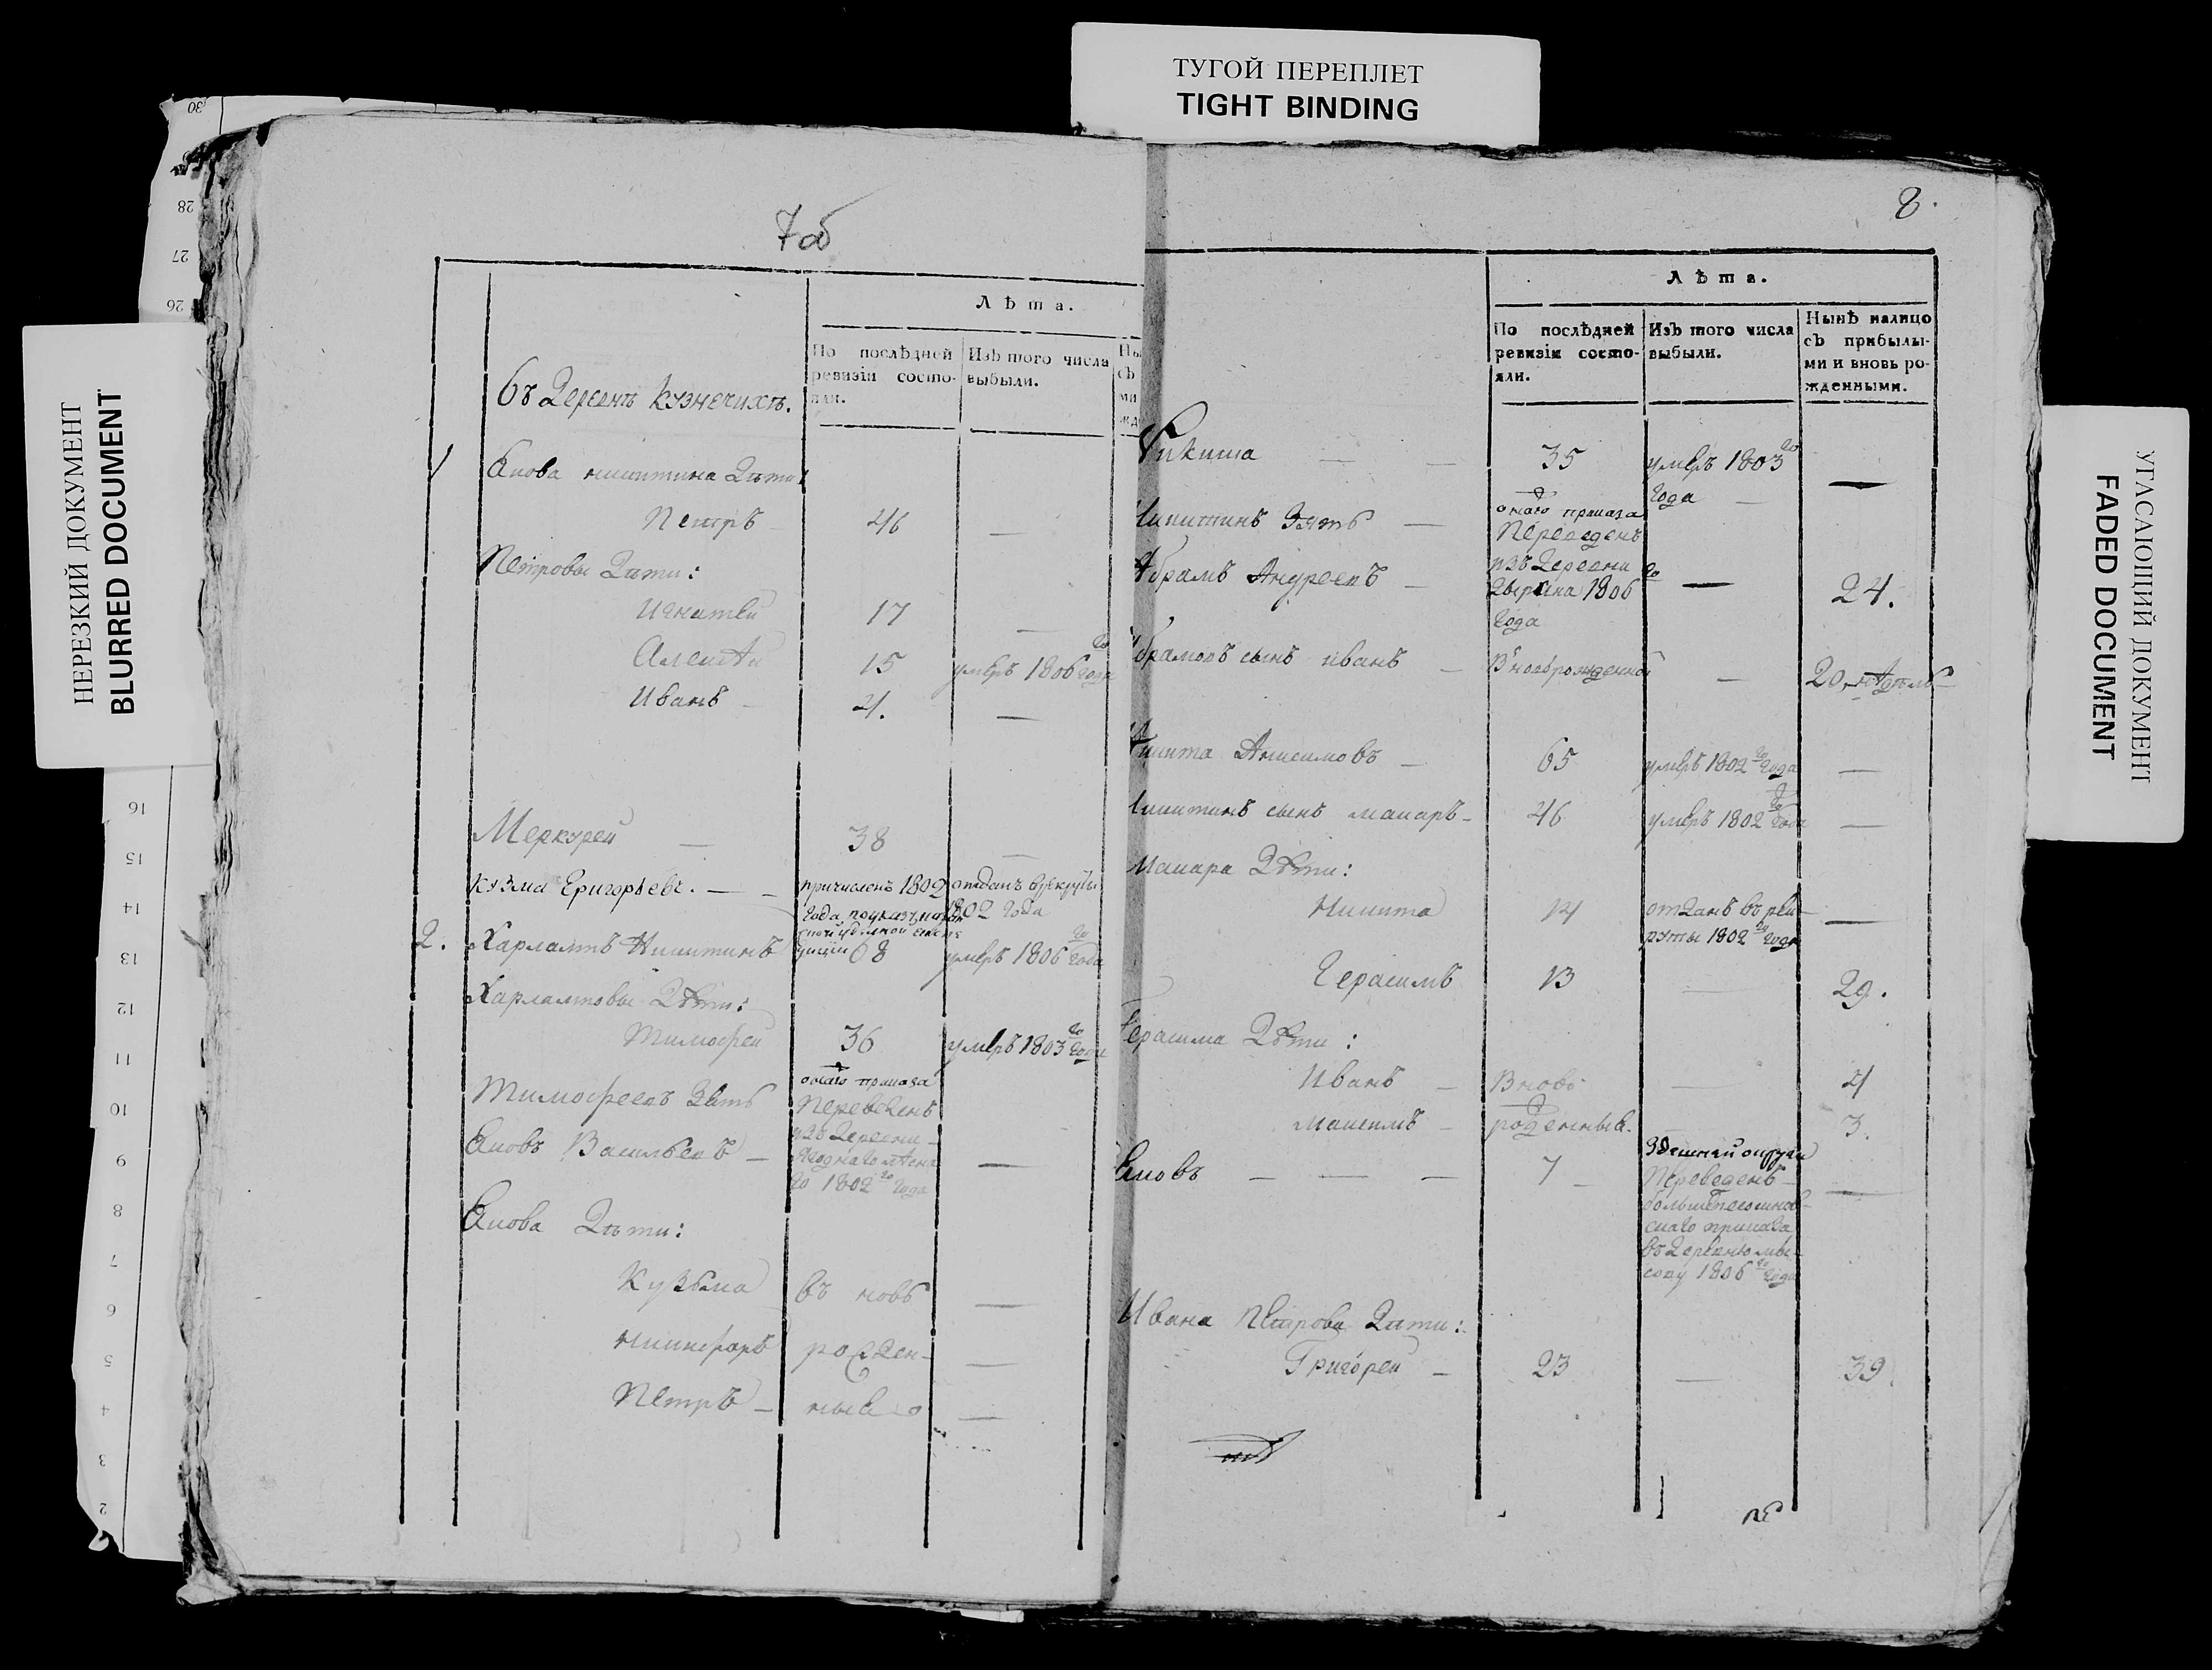 ТУГОЙ ПЕРЕПЛЕТ
TIGHT BINDING
НЕРЕЗКИЙ ДОКУМЕНТ
BLURRED DOCUMENT
УГАСАЮЩИЙ ДОКУМЕНТ
FADED DOCUMENT
30
28
27
26
16
15
14
13
12
11
10
9
8
7
6
5
4
3
2
7об
Лѣта.
По послѣдней ревизіи состо-
яли.
Изъ того числа
выбыли.
Въ Деревнѣ Кузнечихѣ.
1 Якова Никитина Дѣти:
Петръ 46 —
Петровы Дѣти:
Игнатей 17 —
Алексѣй 15 умеръ 1806го года
Иванъ 4. —
Меркурей — 38 —
Кузма Григорьевъ. — причисленъ 1802 отданъ в рекруты
года 1802 года
2. Харлампъ Никитинъ 68 умеръ 1806го года
Харламповы Дѣти:
Тимофей 36 умеръ 1803го года
Тимофеевъ Зять онаго приказа
переведенъ
Яковъ Васильевъ — изъ Деревни —
го 1802го года
Якова Дѣти:
Кузьма въ новь —
Никифоръ рожден- —
Петръ — ные —
8.
Лѣта.
По послѣдней
ревизіи состо-
яли.
Изъ того числа
выбыли.
Нынѣ налицо
съ прибылы-
ми и вновь ро-
жденными.
Никита — — 35 умеръ 1803го —
года —
Никитинъ Зять — онаго приказа
переведенъ
Абрамъ Андреевъ — изъ Деревни — 24.
1806го
года
Абрамовъ сынъ Иванъ — Вновьрожденной — 20,
Никита Анисимовъ — 65 умеръ 1802го года —
Никитинъ сынъ Макаръ — 46 умеръ 1802го года —
Макара Дѣти:
Никита 14 отданъ въ рек- —
руты 1802го года
Герасимъ 13 — 29.
Герасима Дѣти:
Иванъ — Вновь — 4
Максимъ — рожденныя. — 3.
Яковъ — — — 7 — Здешней округи
Переведенъ —
приказа
въ Деревню
1806го года
Ивана Петрова Дѣти:
Григорей — 23 — 39.